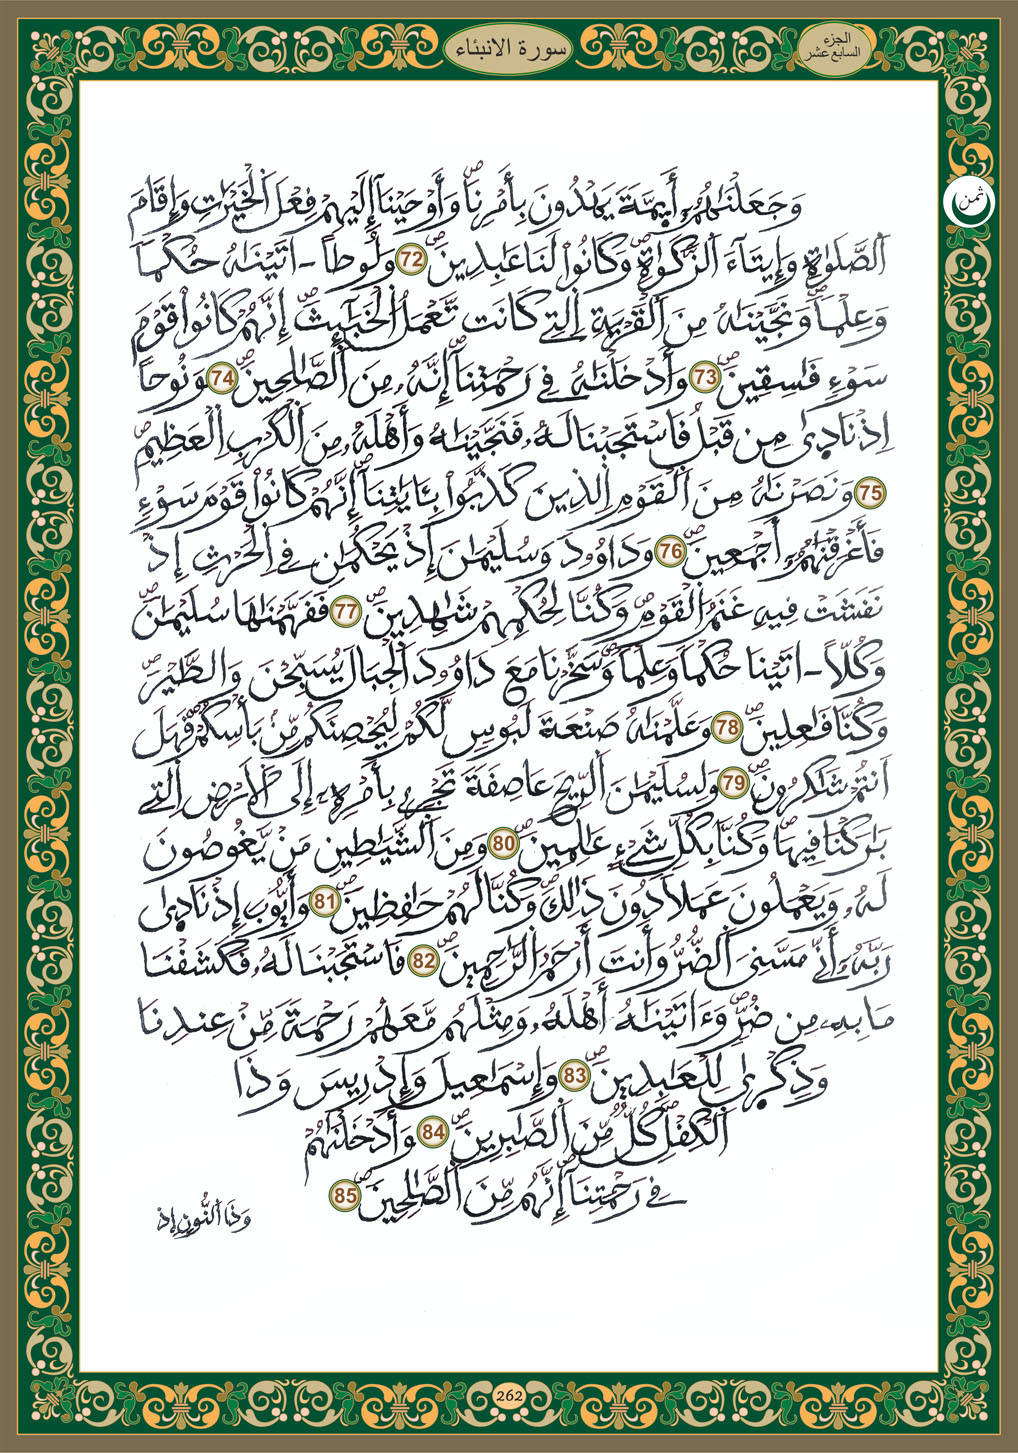 سورة الانبئاء
الجزء
السابع عشر
ثمن
وَجَعَلْنَٰهُمُۥٓ أَئِمَّةَ يَهْدُونَ بِأَمْرِنَاۖ وَأَوْحَيْنَآ إِلَيْهِمْ فِعْلَ اَلْخَيْرَٰتِ وَإِقَامَ
اَلصَّلَوٰةِ وَإِيتَآءَ اَلزَّكَوٰةِۖ وَكَانُواْ لَنَا عَٰبِدِينَۖ 72 وَلُوطاً ـ اتَيْنَٰهُ حُكْماٗ
وَعِلْماٗۖ وَنَجَّيْنَٰهُ مِنَ اَلْقَرْيَةِ اِلتِے كَانَت تَّعْمَلُ اُلْخَبَٰٓئِثَۖ إِنَّهُمْ كَانُواْ قَوْمَ
سَوْءٖ فَٰسِقِينَۖ 73 وَأَدْخَلْنَٰهُ فِے رَحْمَتِنَآ إِنَّهُۥ مِنَ اَلصَّٰلِحِينَۖ 74 وَنُوحاً
اِذْ نَادٜىٰ مِن قَبْلُ فَاسْتَجَبْنَا لَهُۥ فَنَجَّيْنَٰهُ وَأَهْلَهُۥ مِنَ اَلْكَرْبِ اِلْعَظِيمِۖ
75 وَنَصَرْنَٰهُ مِنَ اَلْقَوْمِ اِلذِينَ كَذَّبُواْ بِـَٔايَٰتِنَآۖ إِنَّهُمْ كَانُواْ قَوْمَ سَوْءٖ
فَأَغْرَقْنَٰهُمُۥٓ أَجْمَعِينَۖ 76 وَدَاوُۥدَ وَسُلَيْمَٰنَ إِذْ يَحْكُمَٰنِ فِے اِلْحَرْثِ إِذْ
نَفَشَتْ فِيهِ غَنَمُ اُلْقَوْمِۖ وَكُنَّا لِحُكْمِهِمْ شَٰهِدِينَۖ 77 فَفَهَّمْنَٰهَا سُلَيْمَٰنَۖ
وَكُلّاً ـ اتَيْنَا حُكْماٗ وَعِلْماٗۖ وَسَخَّرْنَا مَعَ دَاوُۥدَ اَلْجِبَالَ يُسَبِّحْنَ وَالطَّيْرَۖ
وَكُنَّا فَٰعِلِينَۖ 78 وَعَلَّمْنَٰهُ صَنْعَةَ لَبُوسٖ لَّكُمْ لِيُحْصِنَكُم مِّنۢ بَأْسِكُمْۖ فَهَلَ
اَنتُمْ شَٰكِرُونَۖ 79 وَلِسُلَيْمَٰنَ اَلرِّيحَ عَاصِفَةٗ تَجْرِے بِأَمْرِهِۦٓ إِلَى اَلْأَرْضِ اِلتِے
بَٰرَكْنَا فِيهَاۖ وَكُنَّا بِكُلِّ شَےْءٍ عَٰلِمِينَۖ 80 وَمِنَ اَلشَّيَٰطِينِ مَنْ يَّغُوصُونَ
لَهُۥ وَيَعْمَلُونَ عَمَلاٗ دُونَ ذَٰلِكَۖ وَكُنَّا لَهُمْ حَٰفِظِينَۖ 81 وَأَيُّوبَ إِذْ نَادٜىٰ
رَبَّهُۥٓ أَنِّے مَسَّنِيَ اَلضُّرُّ وَأَنتَ أَرْحَمُ اُلرَّٰحِمِينَۖ 82 فَاسْتَجَبْنَا لَهُۥ فَكَشَفْنَا
مَا بِهِۦ مِن ضُرّٖۖ وَءَاتَيْنَٰهُ أَهْلَهُۥ وَمِثْلَهُم مَّعَهُمْ رَحْمَةٗ مِّنْ عِندِنَا
وَذِكْرٜىٰ لِلْعَٰبِدِينَۖ 83 وَإِسْمَٰعِيلَ وَإِدْرِيسَ وَذَا
اَلْكِفْلِۖ كُلّٞ مِّنَ اَلصَّٰبِرِينَۖ 84 وَأَدْخَلْنَٰهُمْ
فِے رَحْمَتِنَآۖ إِنَّهُم مِّنَ اَلصَّٰلِحِينَۖ 85
وَذَا اَلنُّونِ إِذ
262